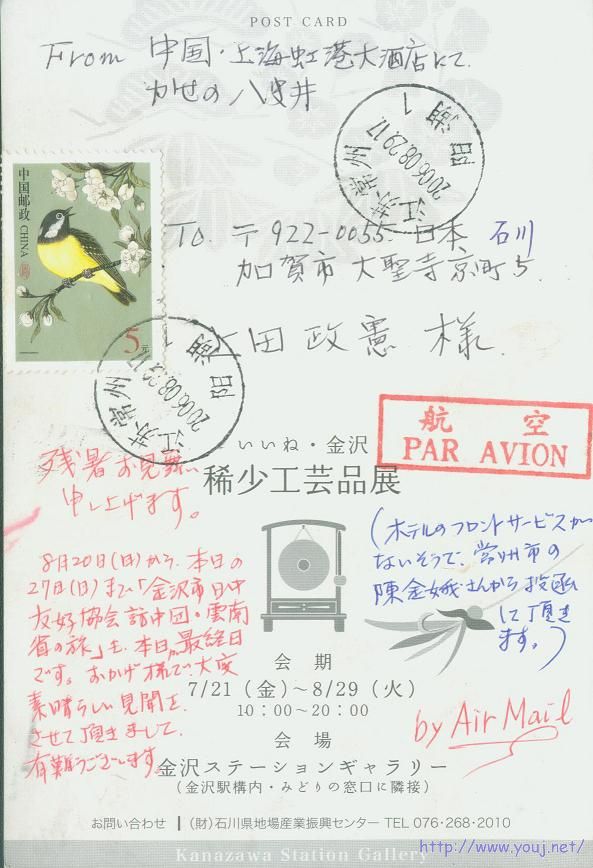 POST CARD
From 中国・上海虹港大酒店にて
かせの八史井
中国邮政 CHINA
5元
江苏常州
2006.08.29.17
湖阳
1
To. 〒922-0055 日本 石川
加賀市 大聖寺京町5
田政憲 様
江苏常州
2006.08.29.17
湖阳
航 空
PAR AVION
いいね・金沢
稀少工芸品展
残暑お見舞い
申し上げます。
8月20日(日)から、本日の
27日(日)まで「金沢市日中
友好協会訪中団・雲南
省の旅」も、本日が最終日
です。おかげ様で、大変
素晴らしい見聞を
させて頂きまして、
有難うございます。
(ホテルのフロントサービスが
ないそうで、常州市の
陳金娥さんから投函
して頂き
ます。)
会 期
7/21(金)~8/29(火)
10:00~20:00
会 場
金沢ステーションギャラリー
(金沢駅構内・みどりの窓口に隣接)
by Air Mail
お問い合わせ ┃ (財)石川県地場産業振興センター TEL 076・268・2010
Kanazawa Station Gallery
http://www.youj.net/